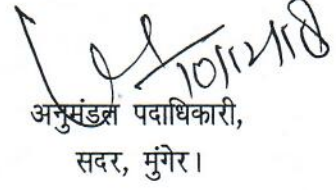 10/12/18
अनुमंडल पदाधिकारी,
सदर, मुंगेर।